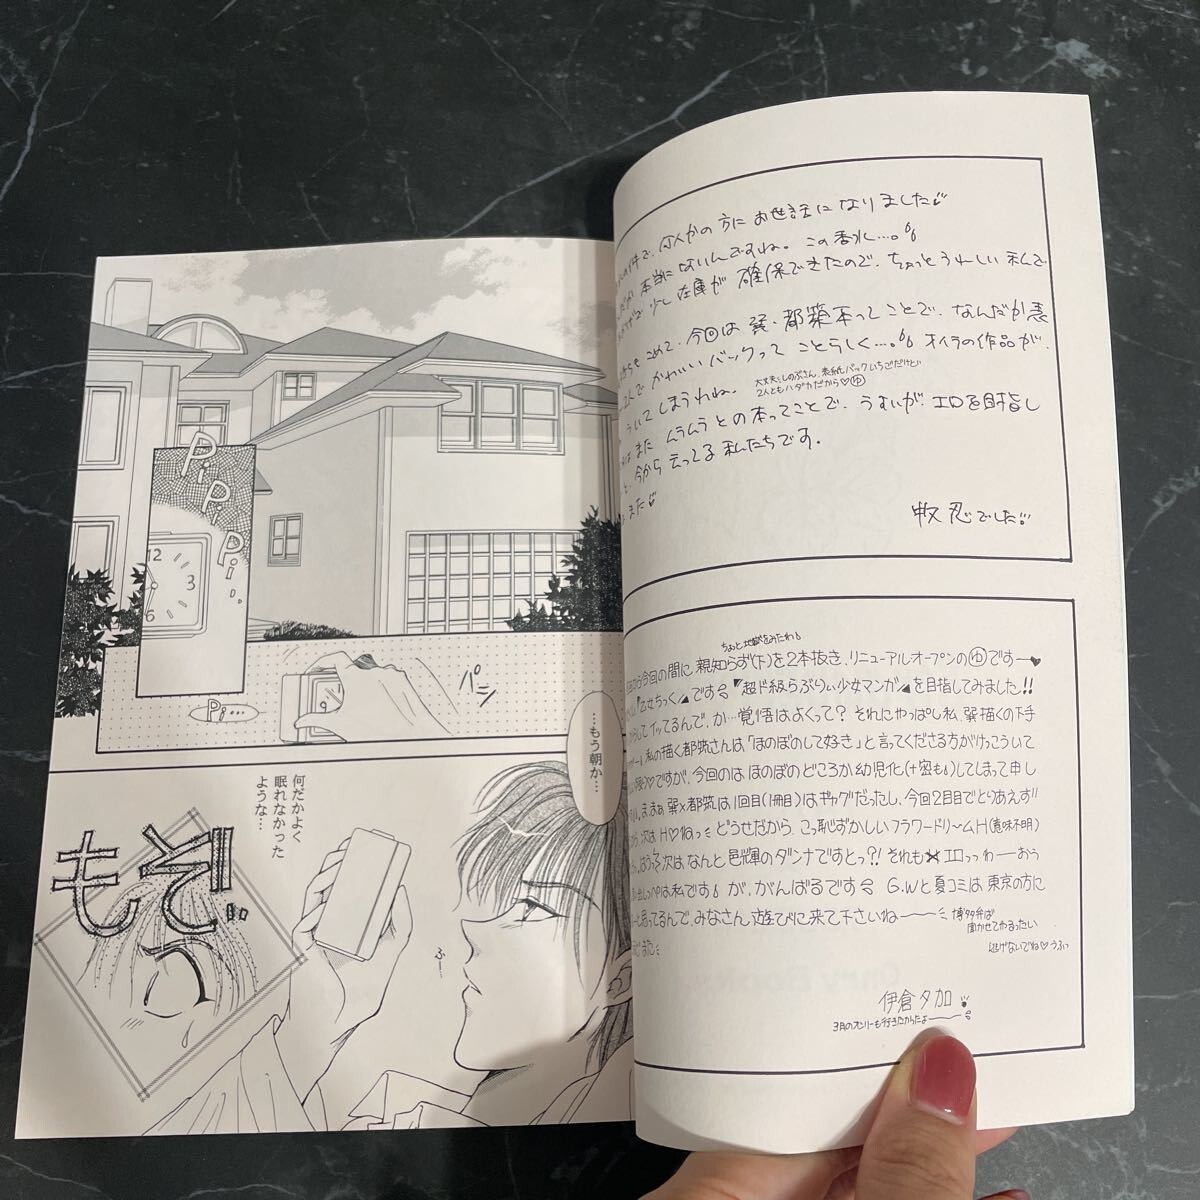 Pi
Pi
Pi
Pi…
12
3
6
Pi…
パシ
…もう朝か…
何だかよく
眠れなかった
ような…
もぞっ
ふー…
何人かの方に お世話になりました
本当に ないんですね。この香水…。
少し 在庫が 確保できたので、ちょっと うれしい 私で
こめて、今回は 巽・都築本って ことで、なんだか表
かわいい バックって ことらしく…。 オイラの作品が、
ういて しまうわね。
大丈夫、しのぶさん、表紙バックいちごだけど
2人ともハダカだから♡ゆ
また ムラムラ との 本って ことで、うすいが、エロを目指し
と、今から 言ってる 私たちです。
また
忍でした
ちょっと地獄をみたわ
今回の間に 親知らず(下)を2本抜き、リニューアルオープンのゆです—♥
乙女ちっく です 超ド級らぶりぃ少女マンガ を目指してみました!!
してイッてるんで、か…覚悟はよくって? それにやっぱし私、巽描くの下手
私の描く都筑さんは、「ほのぼのして好き」と言ってくださる方がけっこういて
♡ですが、今回のは ほのぼの どころか 幼児化(+密も)してしまって申し
ままぁ、巽×都筑は1回目(1冊目)はギャグだったし、今回2目でとりあえず
次は H♡ねっ どうせだから、こっ恥ずかしいフラワードリームH(意味不明)
次は なんと 邑輝のダンナですとっ?! それも エロっっわーおう
は私です が、がんばるです G.Wと夏コミは東京の方に
思ってるんで、みなさん、遊びに来て下さいね——
博多弁ば
聞かせてやるったい
逃げないでね♡うふっ
また
伊倉夕加
3月のオンリーも行きたかったよ——